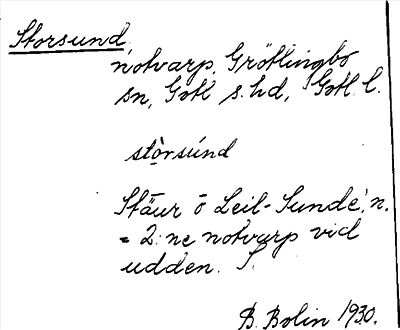 Storsund,
notvarp, Grötlingbo
sn, Gotl s. hd, Gotl. l.
stòrsúnd
Stäur ō Leil-Sunde, n.
= 2:ne notvarp vid
udden. S.
B. Bolin 1930.